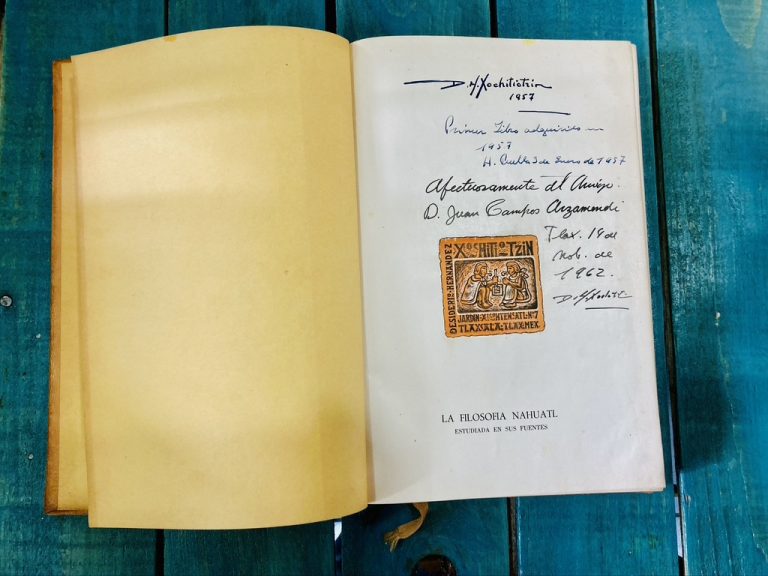 D. H. Xochitiotzin
1957
Primer Libro adquirido en
1957
H. Puebla 3 de Enero de 1957
Afectuosamente al Amigo.
D. Juan Campos Arzamendi
Tlax. 14 de
Nob. de
1962.
D. H. Xochit
DESIDERIO·HERNANDEZ
XOCHITIOTZIN
JARDIN·XICOHTENCATL·Nº7
TLAXCALA;TLAX·MEX.
LA FILOSOFIA NAHUATL
ESTUDIADA EN SUS FUENTES